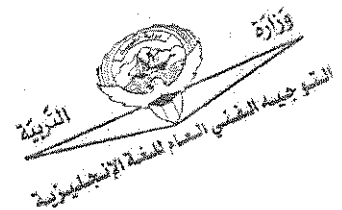 وَزَارَة
التربيَة
التوجيه الفني العام للغة الإنجليزية